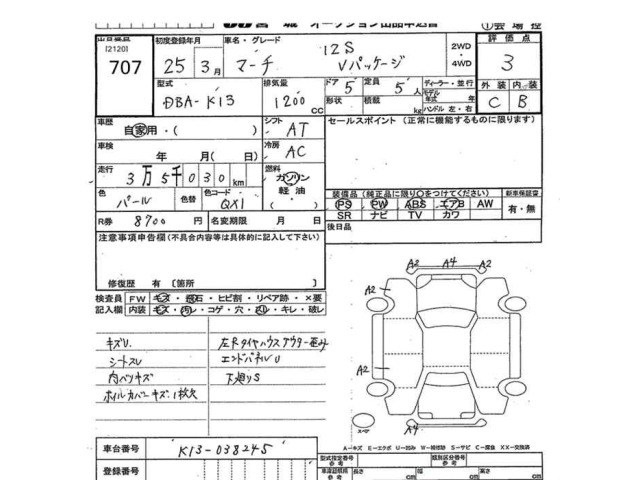 宮城 オークション出品申込書 ①会場控
出品番号 [2120] 707
初度登録年月 25年3月
車名・グレード マーチ 12S Vパッケージ
2WD ・ 4WD
評価点 3
外装 内装 C B
型式 DBA-K13
排気量 1200 CC
ドア 5 定員 5人
形状 積載 kg
ディーラー・並行
モデル年式 年
ハンドル 左・右
車歴 自家用・( )
シフト AT
セールスポイント (正常に機能するものに限ります)
車検 年 月( 日)
冷房 AC
走行 3万5千030km
燃料 ガソリン 軽油
色 パール 色替 色コード QX1
装備品(純正品に限り○をつけてください)
PS PW ABS エアB AW
SR ナビ TV カワ
新車保証書 有・無
R券 8700 円 名変期限 月 日
後日品
注意事項申告欄(不具合内容等は具体的に記入して下さい)
修復歴 有 〔箇所 〕
検査員記入欄
FW キズ・飛石・ヒビ割・リペア跡・×要
内装 キズ・汚レ・コゲ・穴・ キレ・破レ
キズU. 左Rタイヤハウスアウター歪み
シートスレ エンドパネルU
内ベリキズ 下廻りS
ホイルカバーキズ.1枚欠
A2 A4 A2
A2
A2
A4
スペア
A-キズ E-エクボ U-凹み W-補修跡 S-サビ C-腐食 XX-交換済
車台番号 K13-038245
登録番号
型式指定番号 参考 類別区分番号 参考
車両寸法参考 長さ cm 幅 cm 高さ cm